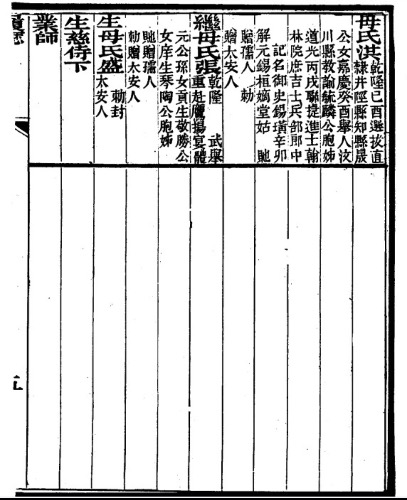 母氏洪 乾隆己酉選拔直
隸井陘縣知縣晟
公女嘉慶癸酉舉人汶
川縣教諭統麟公胞姊
道光丙戌聯捷進士翰
林院庶吉士兵部郎中
記名御史錫璜辛卯
解元錫桓嫡堂姑 貤
贈孺人 勅
贈太安人
繼母氏張 乾隆 武舉
重赴鷹揚宴體
元公孫女貢生敬勝公
女庠生琴陶公胞姊
貤贈孺人
勅贈太安人
生母氏盛 勅封
太安人
生慈侍下
業師
五